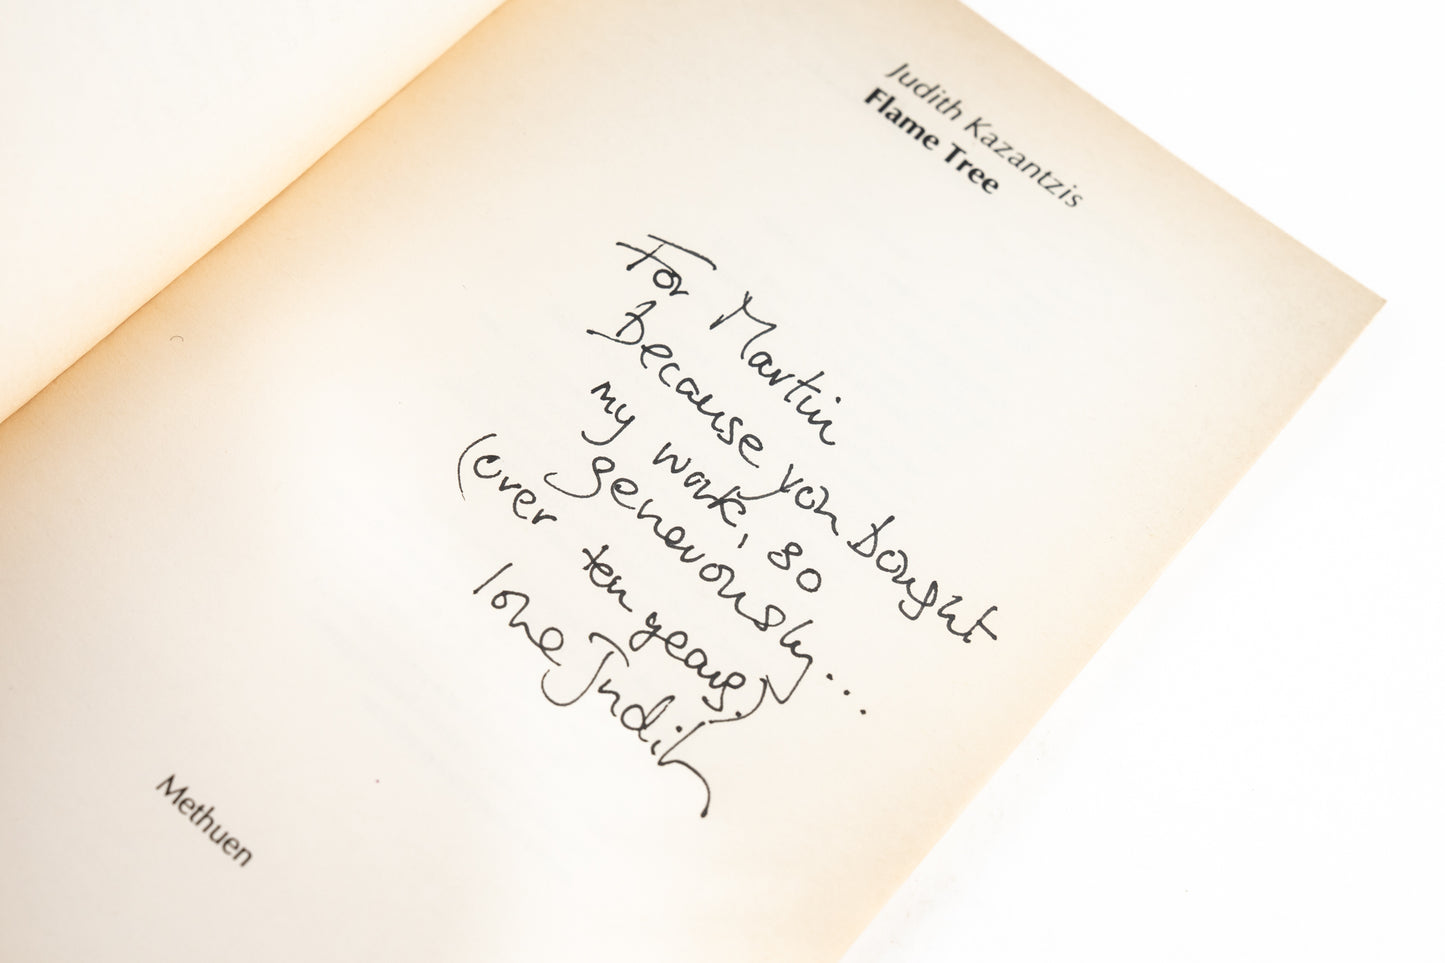 Judith Kazantzis
Flame Tree
For Martin
Because you bought
my work, so
generously...
(over ten years.)
love Judith
Methuen